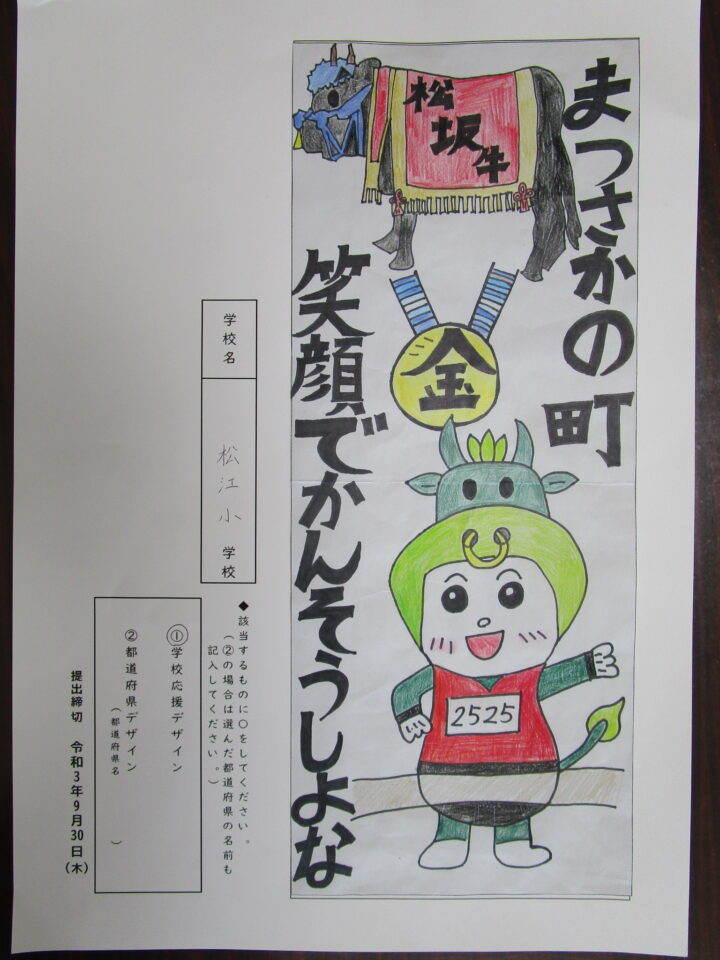 まつさかの町
松坂牛
金
笑顔でかんそうしよな
2525
学校名
松江小 学校
◆該当するものに○をしてください。
(②の場合は選んだ都道府県の名前も
記入してください。)
①学校応援デザイン
②都道府県デザイン
(都道府県名 )
提出締切 令和3年9月30日(木)